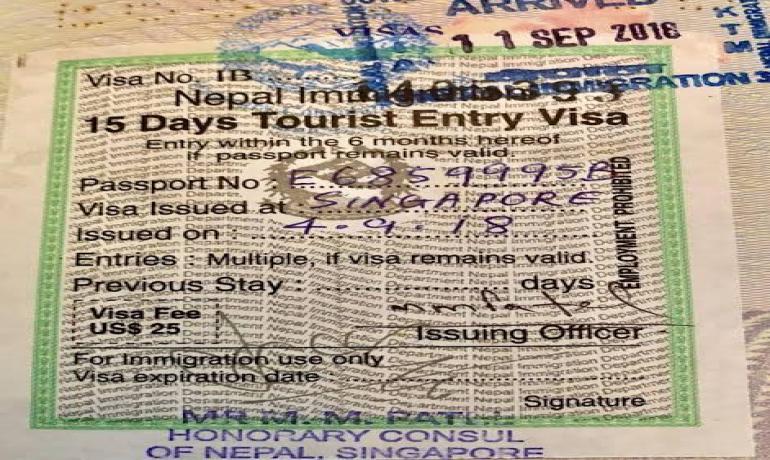 ARRIVED
VISAS
11 SEP 2018
Visa No. 1B
Nepal Immigration
15 Days Tourist Entry Visa
Entry within the 6 months hereof
if passport remains valid
Passport No : E6859995E
Visa Issued at SINGAPORE
Issued on : 4.9.18
EMPLOYMENT PROHIBITED
Entries : Multiple, if visa remains valid.
Previous Stay : days
Visa Fee
US$ 25
Issuing Officer
For Immigration use only
Visa expiration date
Signature
MR M. M. PATEL
HONORARY CONSUL
OF NEPAL, SINGAPORE